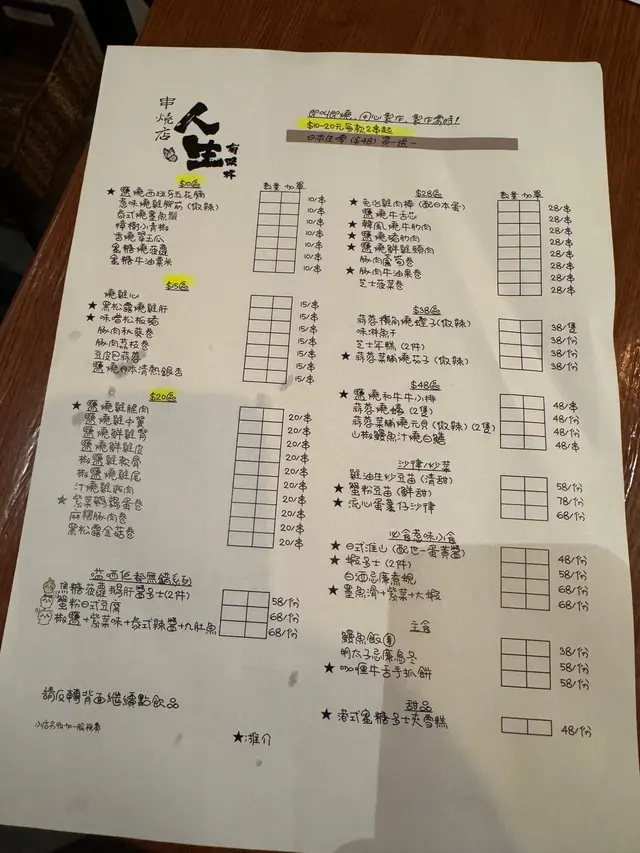 串燒店
人生
有串杯
即叫即燒，用心製作，製作需時！
$10-20元每款2串起
日本生啤($48)買一送一
$10區
數量 加單
★ 鹽燒西班牙五花腩 10/串
惹味燒雞腳筋(微辣) 10/串
泰式燒墨魚鬚 10/串
樟樹小青椒 10/串
香燒翠玉瓜 10/串
蜜糖燒菠蘿 10/串
蜜糖牛油粟米 10/串
$15區
燒雞心 15/串
★ 黑松露燒雞肝 15/串
★ 味噌松板豬 15/串
豚肉秋葵卷 15/串
豚肉荔枝卷 15/串
豆皮包蒜蓉 15/串
鹽燒日本清熱銀杏 15/串
$20區
★ 鹽燒雞腿肉 20/串
鹽燒雞中翼 20/串
鹽燒鮮雞腎 20/串
鹽燒鮮雞皮 20/串
椒鹽雞軟骨 20/串
椒鹽燒雞尾 20/串
汁燒雞腿肉 20/串
★ 紫菜鵪鶉蛋卷 20/串
麻糬豚肉卷 20/串
黑松露金菇卷 20/串
焦糖菠蘿鵝肝醬多士(2件) 58/份
蟹粉日式豆腐 68/份
椒鹽+紫菜味+泰式辣醬+九肚魚 68/份
請反轉背面繼續點飲品
小店另收加一服務費
★:推介
$28區
數量 加單
★ 免治雞肉棒(配日本蛋) 28/串
鹽燒牛舌芯 28/串
★ 韓風燒牛肋肉 28/串
★ 鹽燒豬肋肉 28/串
★ 鹽燒鮮雞頸肉 28/串
豚肉蘆筍卷 28/串
★ 豚肉牛油果卷 28/串
芝士菠菜卷 28/串
$38區
蒜蓉橫角燒蟶子(微辣) 38/隻
味淋魚干 38/份
芝士年糕(2件) 38/份
★ 蒜蓉菜脯燒茄子(微辣) 38/份
$48區
★ 鹽燒和牛牛小排 48/串
蒜蓉燒蠔(2隻) 48/份
蒜蓉菜脯燒元貝(微辣)(2隻) 48/份
山椒鰻魚汁燒白鱔 48/串
沙律/炒菜
雞油生炒豆苗(清甜) 58/份
★ 蟹粉豆苗(鮮甜) 78/份
★ 流心蛋薯仔沙律 68/份
必食惹味小食
★ 日式淮山(配世一蛋黃醬) 48/份
★ 蝦多士(2件) 58/份
白酒忌廉煮蜆 68/份
★ 墨魚滑+紫菜+大蝦 68/份
主食
鰻魚飯 38/份
明太子忌廉烏冬 58/份
★ 咖喱牛舌手抓餅 58/份
甜品
★ 港式蜜糖多士夾雪糕 48/份